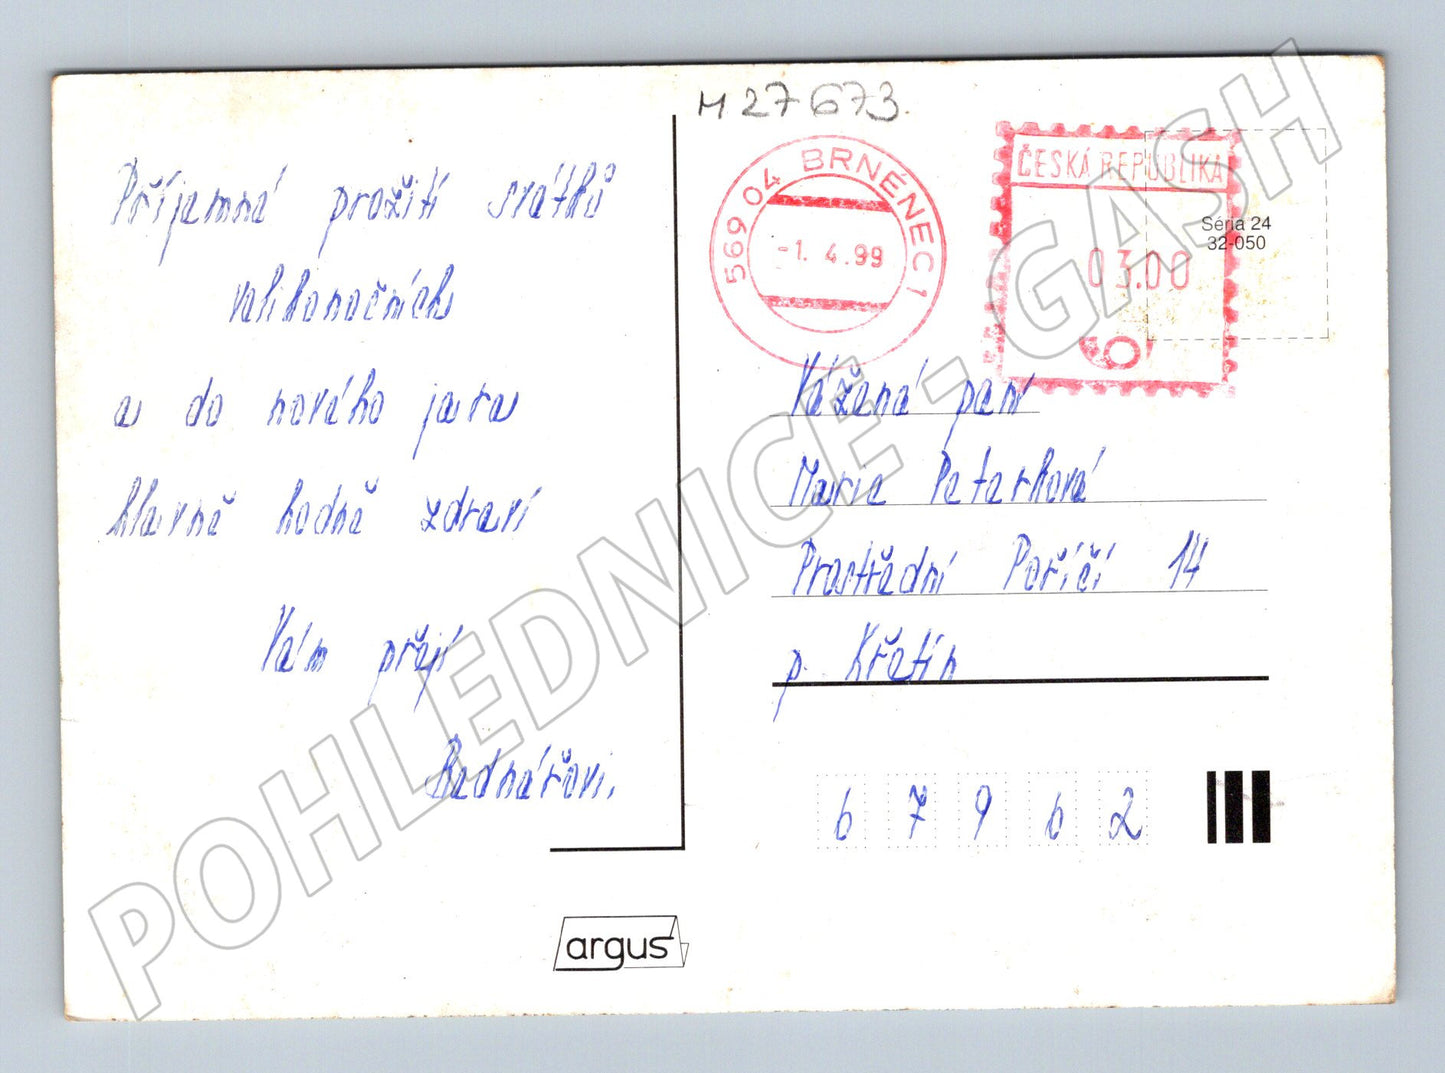 H 27 673.
569 04 BRNĚNEC 1
-1. 4. 99
ČESKÁ REPUBLIKA
03.00
Séria 24
32-050
Příjemné prožití svátků
velikonočních
a do nového jara
hlavně hodně zdraví
Vám přejí
Bednářovi.
Vážená paní
Marie Peterková
Prostřední Poříčí 14
p. Křetín
6 7 9 6 2
argus
POHLEDNICE - GASH